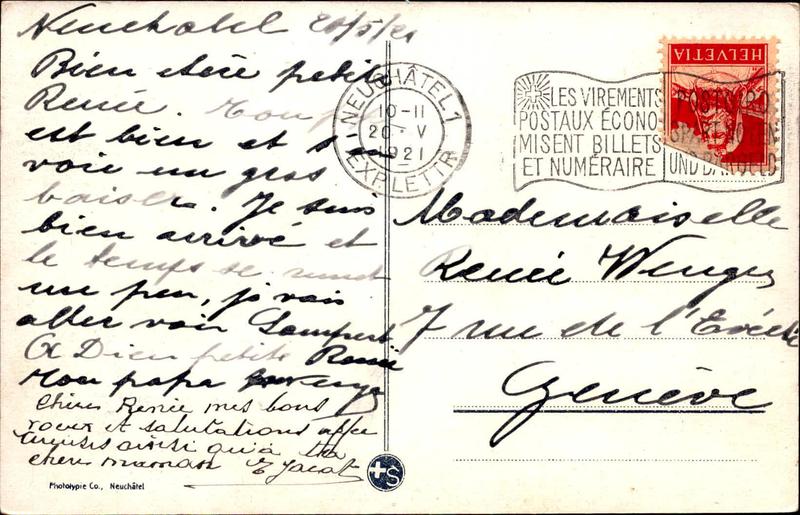 Neuchatel 20/5/21
Bien chère petite
Renée.
est bien et
voie un gros
baiser. Je suis
bien arrivé et
le temps se
un peu, je vais
aller voir Lampert
A Dieu petite Renée
Mon papa
chère Renée mes bons
voeux et salutations affec
tueuses ainsi qu'à ta
chère maman E Jacot
Photolypie Co., Neuchâtel
NEUCHÂTEL 1
10-11
20·V
1921
EXP. LETTR.
LES VIREMENTS
POSTAUX ÉCONO
MISENT BILLETS
ET NUMÉRAIRE
HELVETIA
Mademoiselle
Renée Wenger
7 rue de l'Evéché
Genève